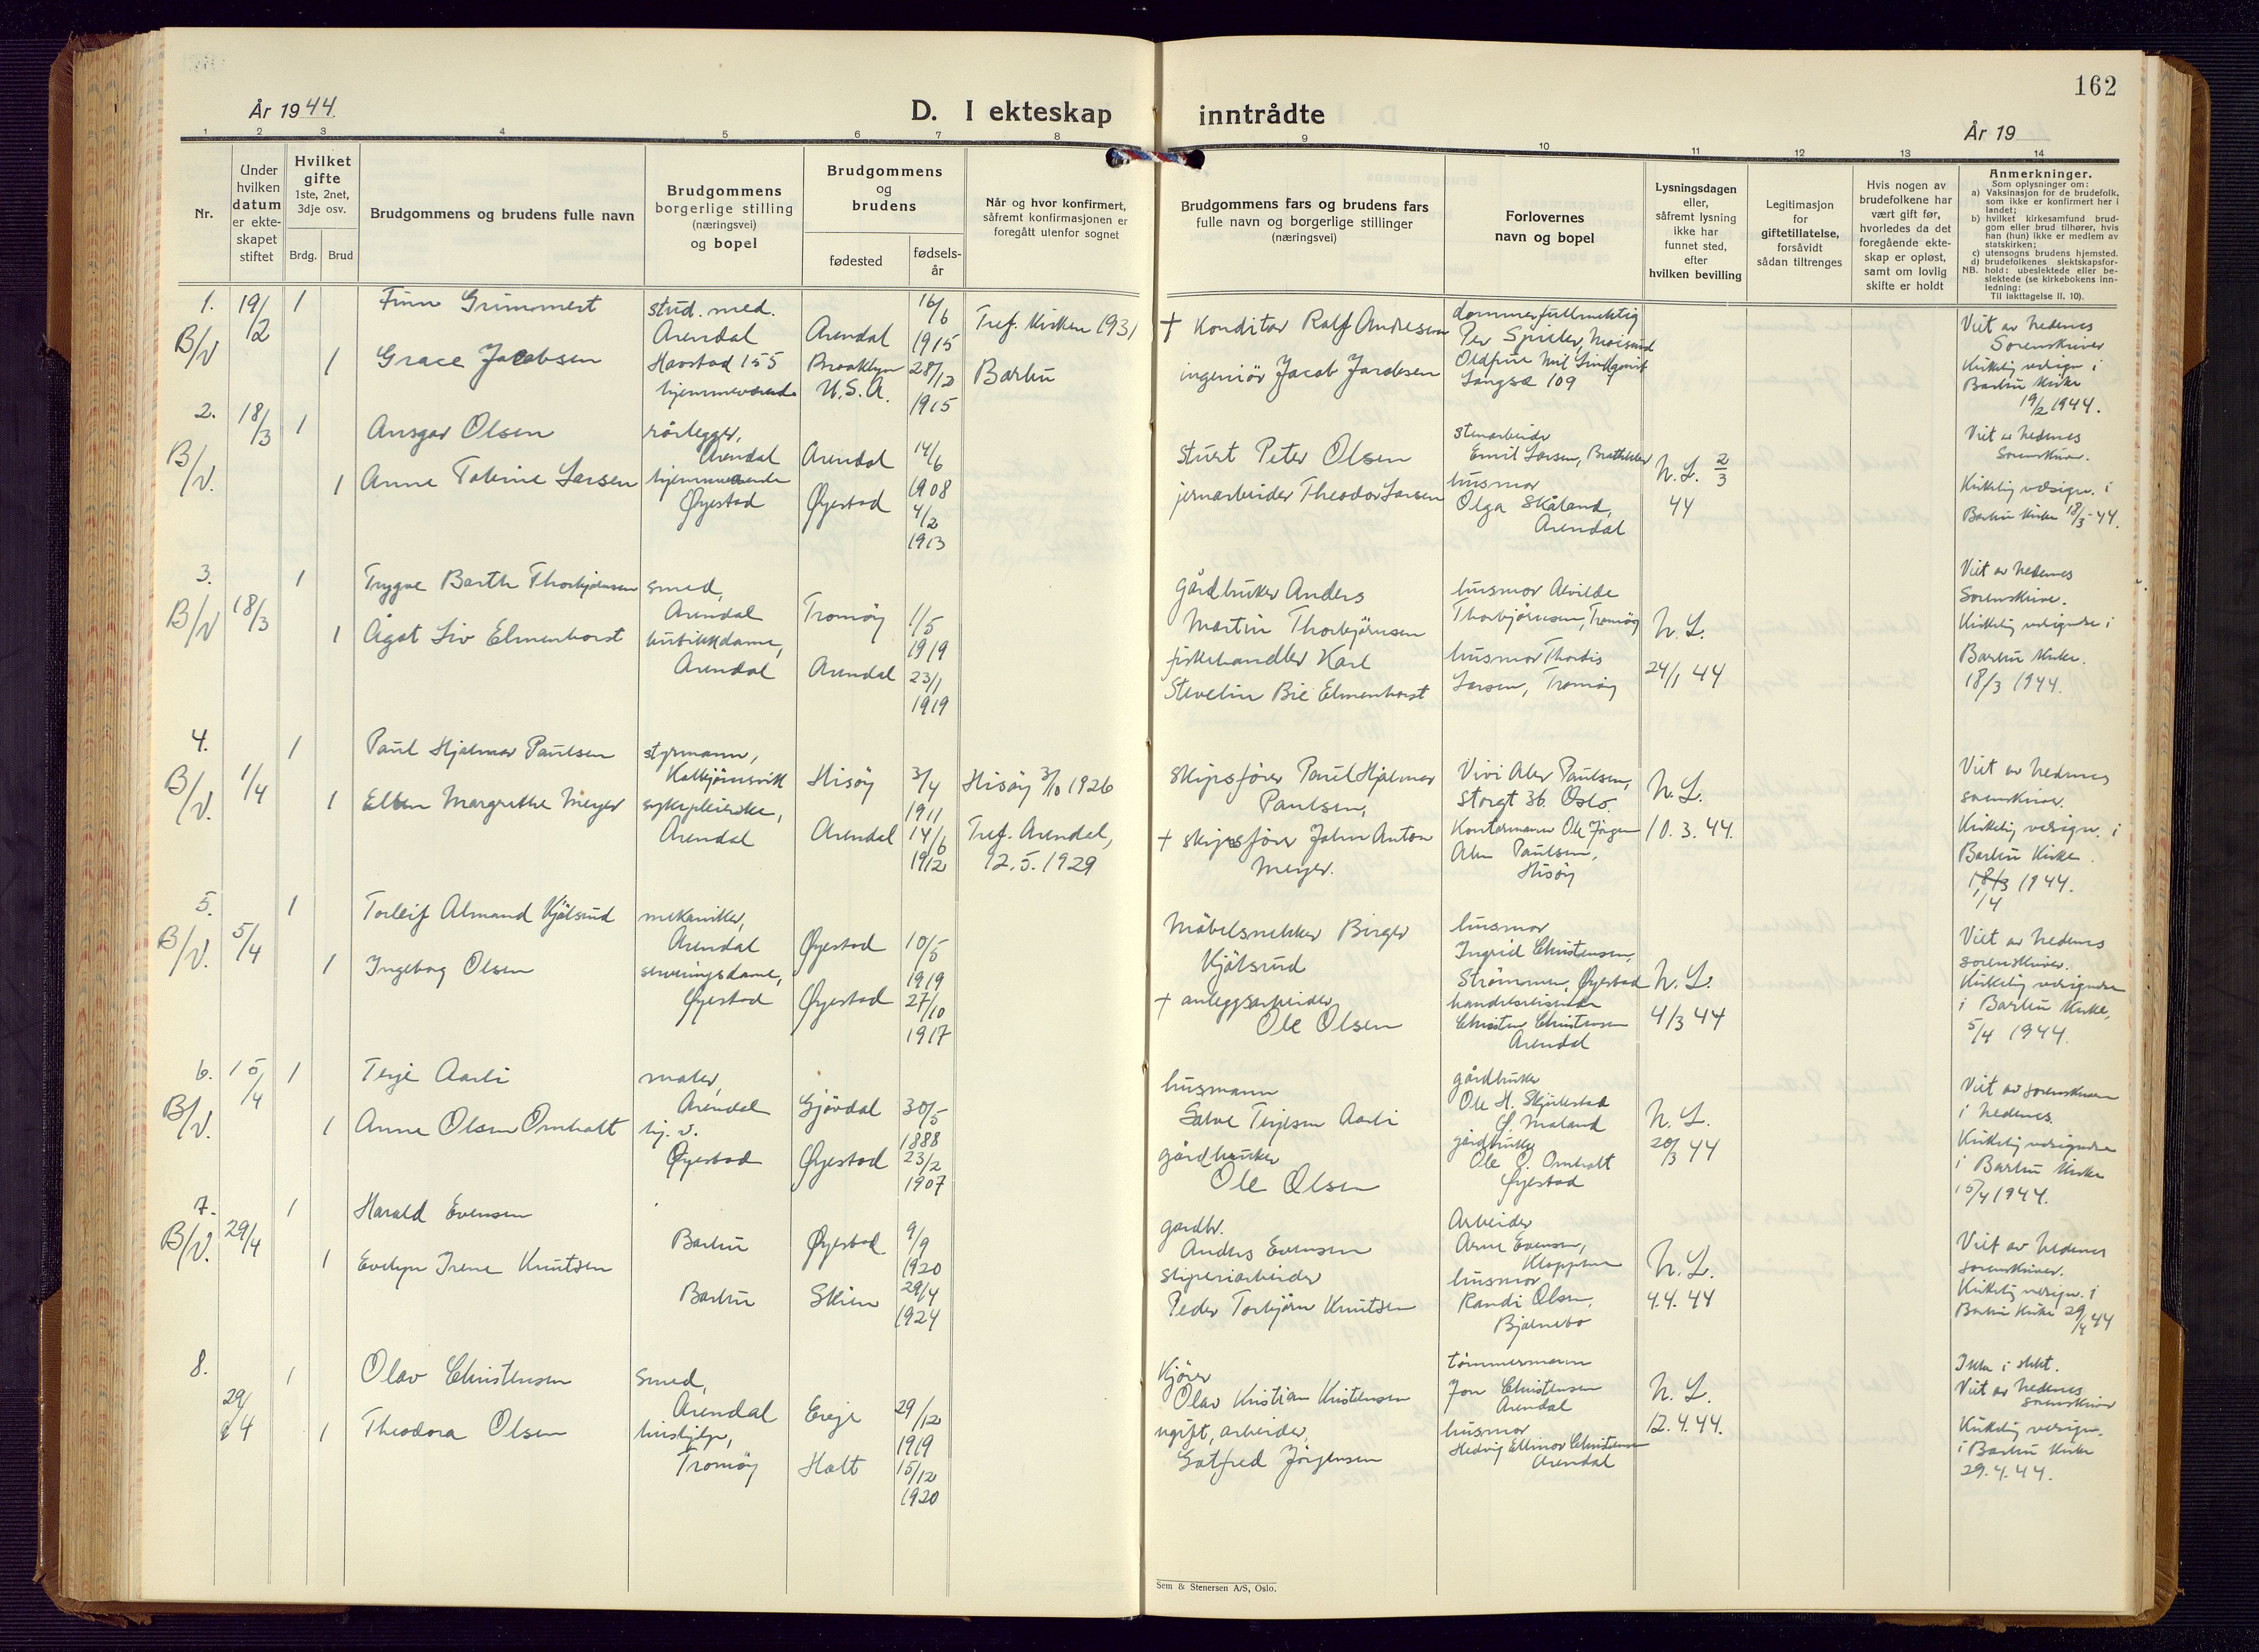 162
År 1944.
D. I ekteskap inntrådte
År 19
1 2 3 4 5 6 7 8 9 10 11 12 13 14
Nr.
Under
hvilken
datum
er ekte-
skapet
stiftet
Hvilket
gifte
1ste, 2net,
3dje osv.
Brdg.
Brud
Brudgommens og brudens fulle navn
Brudgommens
borgerlige stilling
(næringsvei)
og bopel
Brudgommens
og
brudens
fødested
fødsels-
år
Når og hvor konfirmert,
såfremt konfirmasjonen er
foregått utenfor sognet
Brudgommens fars og brudens fars
fulle navn og borgerlige stillinger
(næringsvei)
Forlovernes
navn og bopel
Lysningsdagen
eller,
såfremt lysning
ikke har
funnet sted,
efter
hvilken bevilling
Legitimasjon
for
giftetillatelse,
forsåvidt
sådan tiltrenges
Hvis nogen av
brudefolkene har
vært gift før,
hvorledes da det
foregående ekte-
skap er opløst,
samt om lovlig
skifte er holdt
Anmerkninger.
Som oplysninger om:
a) Vaksinasjon for de brudefolk,
som ikke er konfirmert her i
landet;
b) hvilket kirkesamfund brud-
gom eller brud tilhører, hvis
han (hun) ikke er medlem av
statskirken;
c) utensogns brudens hjemsted.
d) brudefolkenes slektskapsfor-
NB. hold: ubeslektede eller be-
slektede (se kirkebokens inn-
ledning:
Til iakttagelse II. 10).
1.
B/V
19/2
1
Finn Grummert
stud. med.
Arendal
Arendal
16/6
1915
Tref. kirken 1931
† Konditor Ralf Andresen
dommerfullmektig
Per Spieler,
1
Grace Jacobsen
Havstad 155
hjemmeværende
Brooklyn
U.S.A.
28/12
1915
Barbu
ingeniör Jacob Jacobsen
Langsæ 109
Viet av Nedenes
Sorenskriver
Kirkelig velsign. i
Barbu Kirke
19/2 1944.
2.
B/V.
18/3
1
Ansgar Olsen
rörlegger,
Arendal
Arendal
14/6
1908
stuert Peter Olsen
stenarbeider
Emil Larsen,
1
Anne Tobine Larsen
hjemmeværende
Øyestad
Øyestad
4/2
1913
jernarbeider Theodor Larsen
husmor
Olga Skåland,
Arendal
N. L. 2/3
44
Viet av Nedenes
Sorenskriver.
Kirkelig velsign. i
Barbu Kirke 18/3-44.
3.
B/V
18/3
1
Trygve Barth Thorbjörnsen
smed,
Arendal
Tromöy
1/5
1919
gårdbruker Anders
Martin Thorbjörnsen
husmor Alvilde
Thorbjörnsen, Tromöy
1
Ågot Liv Elmenhorst
butikkdame,
Arendal
Arendal
23/1
1919
fiskehandler Karl
Stevelin Bie Elmenhorst
husmor Thordis
Larsen, Tromöy
N. L.
24/1 44
Viet av Nedenes
Sorenskriver.
Kirkelig velsignelse i
Barbu Kirke.
18/3 1944.
4.
B/V.
1/4
1
Paul Hjalmar Paulsen
styrmann,
Kolbjörnsvik
Hisöy
3/4
1911
Hisöy 3/10 1926
skipsförer Paul Hjalmar
Paulsen,
Vivi Paulsen,
Storgt 36. Oslo
1
Ellen Margrethe Meyer
sykepleierske,
Arendal
Arendal
14/6
1912
Tref. Arendal,
12.5.1929
† skipsförer John Anton
Meyer.
Kontormann Ole Jörgen
Paulsen,
Hisöy
N. L.
10.3.44.
Viet av Nedenes
sorenskriver.
Kirkelig velsign. i
Barbu Kirke.
18/3 1944.
1/4
5.
B/V.
5/4
1
Torleif Almand Kjölsrud
mekaniker,
Arendal
Øyestad
10/5
1919
Möbelsnekker Birger
Kjölsrud
husmor
Ingrid Christensen,
Strømmen, Øyestad
1
Ingeborg Olsen
serveringsdame,
Øyestad
Øyestad
27/10
1917
† anleggsarbeider
Ole Olsen
handelsreisende
Christen Christensen
Arendal
N. L.
4/3 44
Viet av Nedenes
sorenskriver.
Kirkelig velsignelse
i Barbu Kirke,
5/4 1944.
6.
B/V.
15/4
1
Terje Aarli
maler,
Arendal
Gjövdal
30/5
1888
husmann
Salve Terjesen Aarli
gårdbruker
Ole H. Skjulestad
Ø. Moland
1
Anne Olsen Omholt
hj. v.
Øyestad
Øyestad
23/2
1907
gårdbruker
Ole Olsen
gårdbruker
Ole O. Omholt
Øyestad
N. L.
20/3 44
Viet av sorenskriveren
i Nedenes.
Kirkelig velsignelse
i Barbu Kirke
15/4 1944.
7.
B/V.
29/4
1
Harald Evensen
Barbu
Øyestad
9/9
1920
gårdbr.
Anders Evensen
Arbeider
Arne Evensen,
Kloppene
1
Evelyn Irene Knutsen
Barbu
Skien
29/4
1924
sliperiarbeider
Peder Torbjörn Knutsen
husmor
Randi Olsen,
Bjørnebo
N. L.
4.4.44
Viet av Nedenes
sorenskriver.
Kirkelig velsign. i
Barbu Kirke 29/4 44
8.
29/4
1
Olav Christensen
smed,
Arendal
Ereje
29/12
1919
Kjörer
Olav Kristian Kristensen
tömmermann
Jon Christensen
Arendal
1
Theodora Olsen
hushjelp,
Tromöy
Holt
15/12
1920
ugift, arbeider,
Gotfred Jörgensen
husmor
Hedvig Ellinor Christensen
Arendal
N. L.
12.4.44.
Ikke i slekt.
Viet av Nedenes
sorenskriver
Kirkelig velsign.
i Barbu Kirke
29.4.44.
Sem & Stenersen A/S, Oslo.